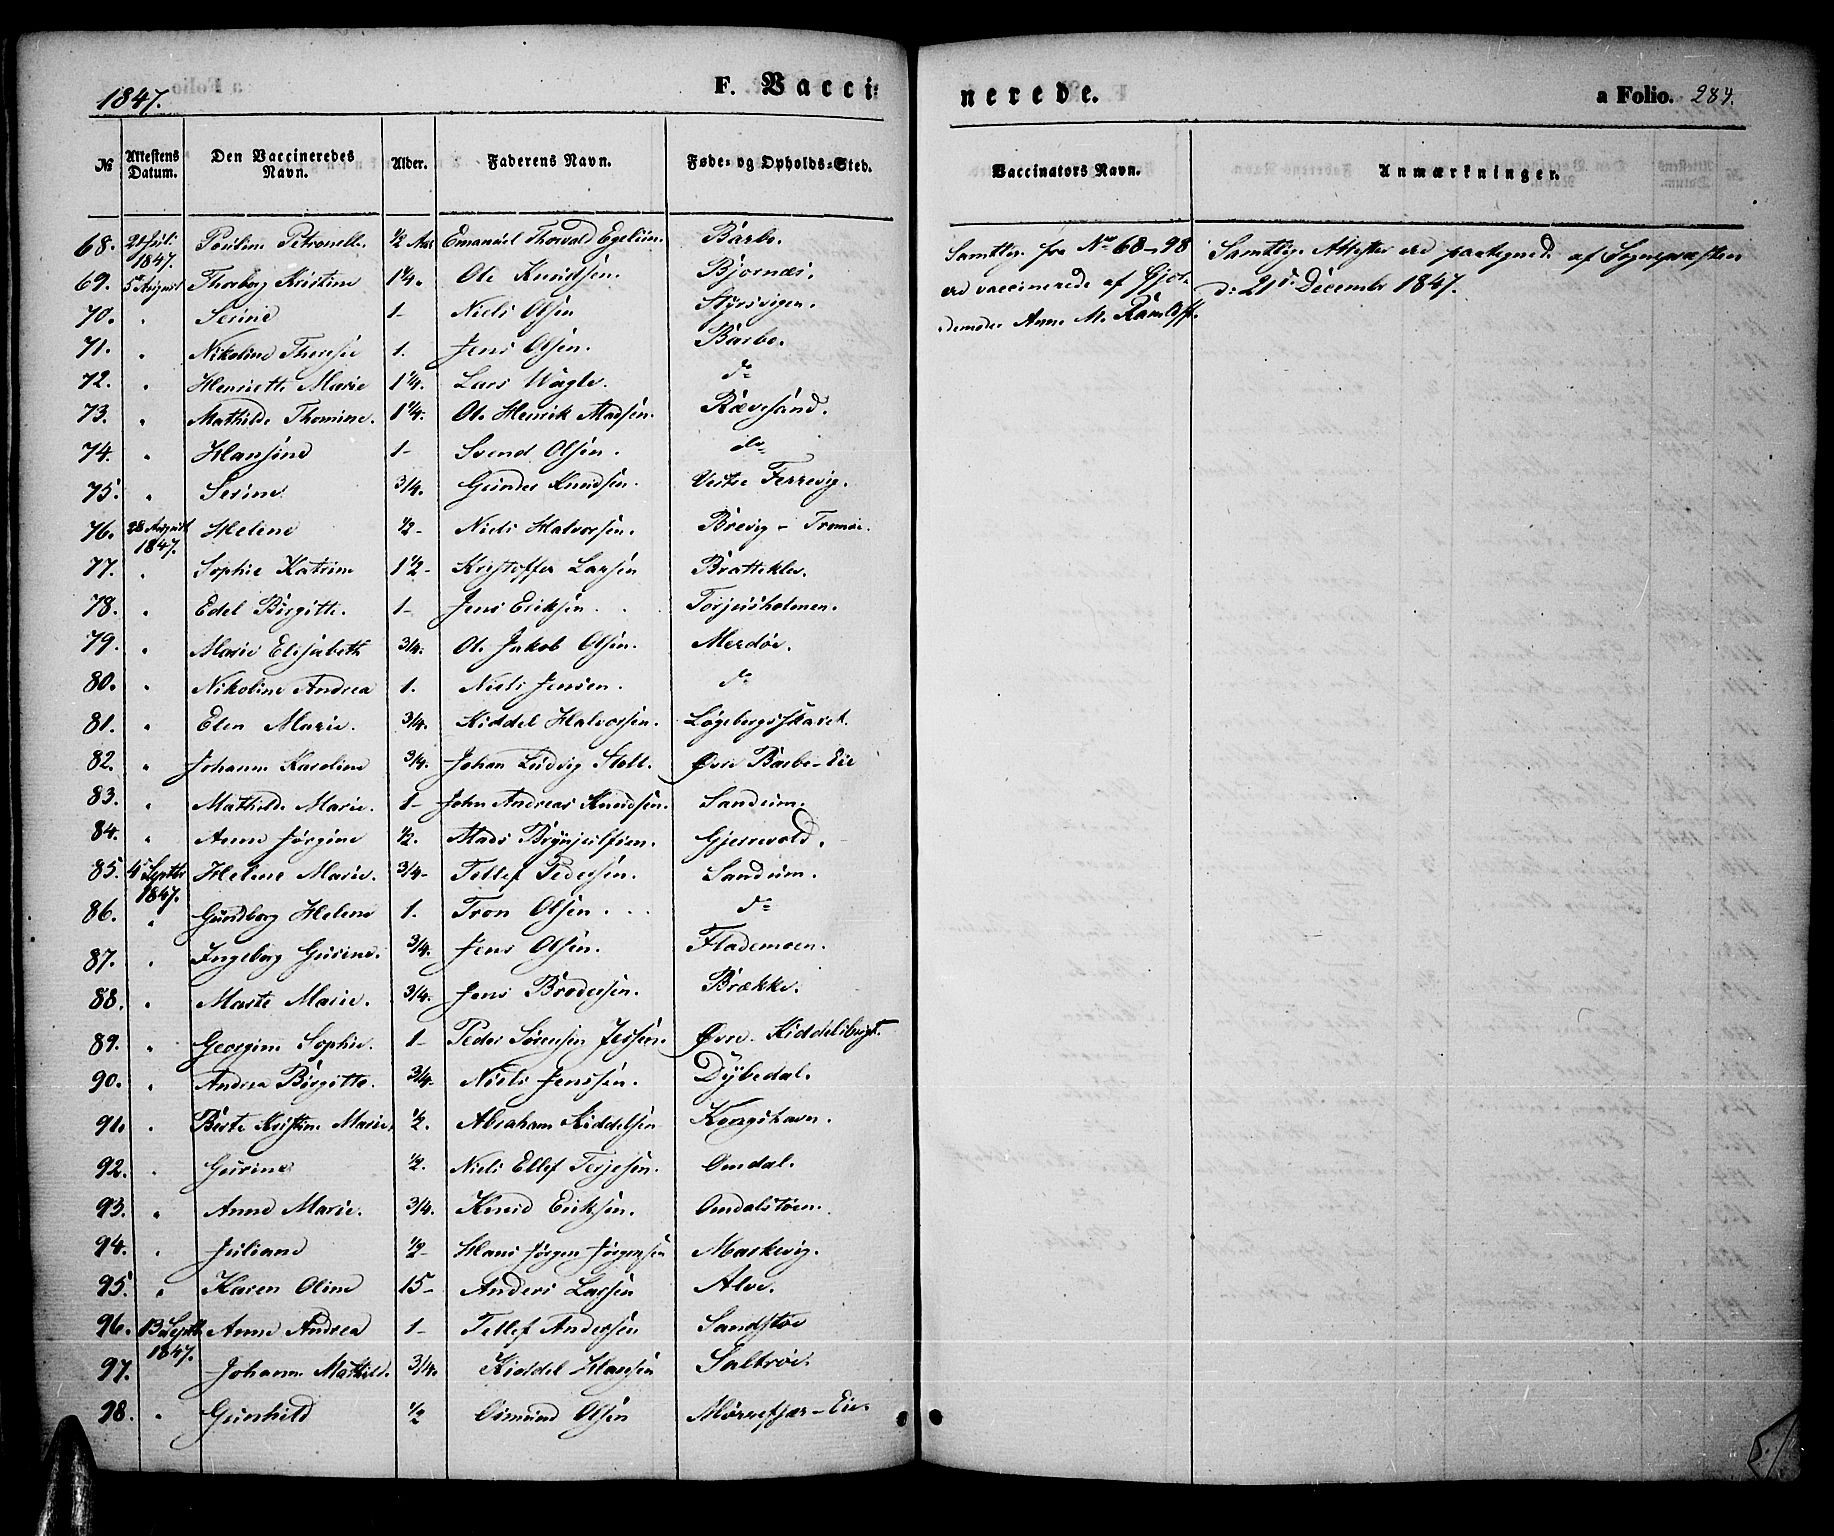 1847.
F. Vacci-
nerede.
a Folio. 284.
№ Attestens Datum. Den Vaccineredes Navn. Alder. Faderens Navn. Føde- og Opholds-Sted.
Vaccinators Navn. Anmærkninger.
68. Juli 1847. Pouline Petronelle. 1/2 Aar Emanuel Thorvald Egelien. Barbo.
69. 5 August Thorborg Kristine 1 1/4. Ole Knudsen. Bjornæs.
70. " Serine 1 - Niels Olsen Styrsvigen.
71. " Nikoline Therese 1. Jens Olsen. Barbo.
72. " Henriette Marie 1 1/4. Lars Wågle. do
73. " Mathilde Thomine. 1 1/4. Ole Henrik Madsen. Rævesand.
74. " Hansine 1 - Svend Olsen. do
75. " Serine 3/4. Gunder Knudsen. Vestre Ferrevig.
76. 28 August 1847. Helene 1/2 - Niels Halvorsen. Brevig - Tromøe.
77. " Sophie Katrine 1 1/2 - Kristoffer Larsen Bratteklev.
78. " Edel Birgitte. 1 - Jens Eriksen. Torjusholmen.
79. " Marie Elisabeth 3/4. Ole Jakob Olsen. Merdøe.
80. " Nikoline Andrea 1. Niels Jensen. do
81. " Elen Marie. 3/4. Kiddel Halvorsen. Løgebergsskaret.
82. " Johanne Karoline 3/4. Johan Ludvig Stoll. Øvre Barbo-Eie
83. " Mathilde Marie. 1 - John Andreas Knudsen. Sandum.
84. " Anne Jørgine 1/2. Mads Brynjulfsen. Gjerevold.
85. 4 Septbr 1847. Helene Marie. 3/4 - Tellef Pedersen. Sandum.
86. " Gundborg Helene 1. Tron Olsen . . . do
87. " Ingeborg Gurine. 3/4. Jens Olsen. Flademoen.
88. " Marte Marie. 3/4. Jens Brodersen. Brække.
89. " Georgine Sophie. 1 - Peder Sørensen Jessen. Øvre Kiddelsbugt.
90. " Andrea Birgitte. 3/4. Niels Jenssen. Dybedal.
91. " Berte Kristine Marie. 1/2. Abraham Kiddelsen Kongshavn.
92. " Gurine 1/2. Niels Ellef Terjesen. Omdal.
93. " Anne Marie. 3/4. Knud Eriksen. Omdalstøen.
94. " Juliane 1/2 - Hans Jørgen Jørgensen Maskevig.
95. " Karen Oline 15 - Anders Larsen Alve.
96. 13 Septb 1847. Anne Andrea 1 - Tellef Andersen Sandstøe
97. Johanne Mathilde. 3/4. Kiddel Hansen Saltrøe.
98. " Gunhild 1/2 Osmund Olsen Mørrefjær-Eie.
Samtlige fra No 68-98
ere vaccinerede af Gjor-
demoder Anne M.
Samtlige Attester ere paategnede af Sognepræsten
d: 21d December 1847.